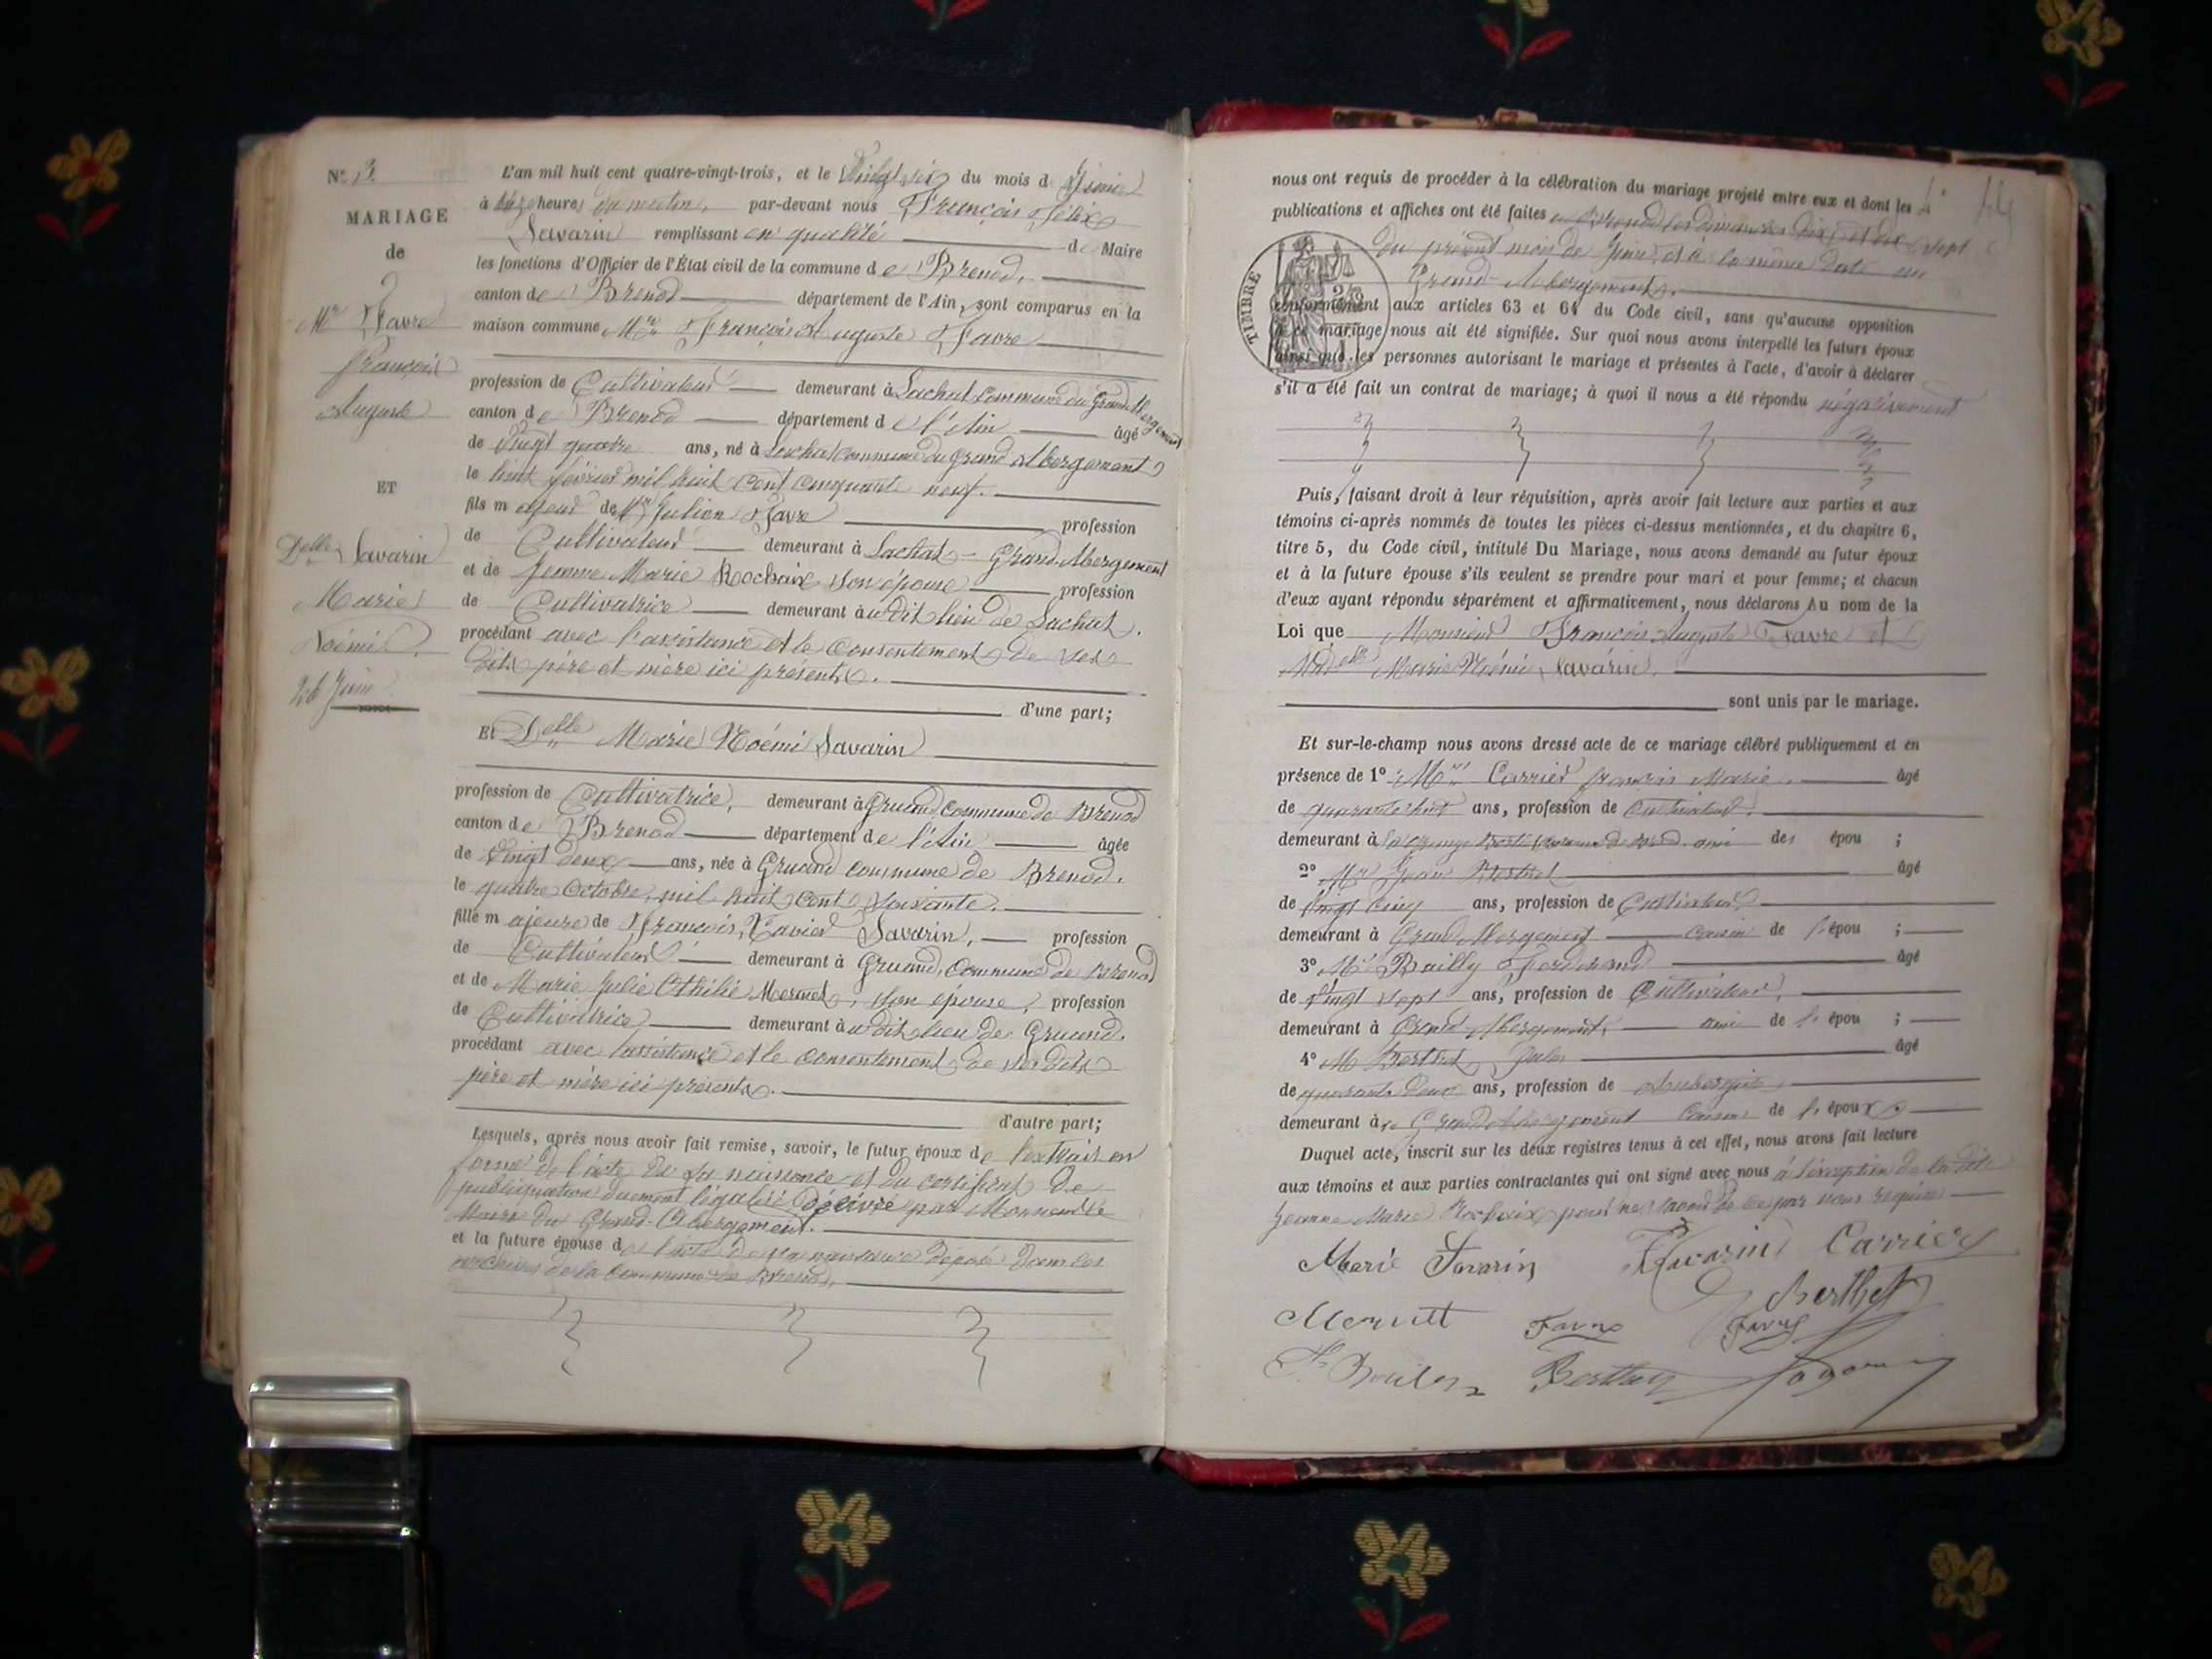 N° 3
MARIAGE
de
Mr Favre
François
Auguste
ET
Delle Savarin
Marie
Noémi
26 Juin
L'an mil huit cent quatre-vingt-trois, et le Vingt six du mois de Juin
à onze heures du matin, par-devant nous François Félix
Savarin remplissant en qualité de Maire
les fonctions d'Officier de l'État civil de la commune de Brenod,
canton de Brenod département de l'Ain, sont comparus en la
maison commune Mr François Auguste Favre
profession de Cultivateur demeurant à Lachat commune du Grand Abergement
canton de Brenod département de l'Ain âgé
de Vingt quatre ans, né à Lachat commune du Grand Abergement
le huit février mil huit cent cinquante neuf.
fils majeur de Mr Julien Favre profession
de Cultivateur demeurant à Lachat - Grand-Abergement
et de Jeanne Marie Rochaix son épouse profession
de Cultivatrice demeurant au dit lieu de Lachat.
procédant avec l'assistance et le consentement de ses
dits père et mère ici présents.
d'une part;
Et Delle Marie Noémi Savarin
profession de Cultivatrice, demeurant à Gruand commune de Brenod
canton de Brenod département de l'Ain âgée
de Vingt deux ans, née à Gruand commune de Brenod.
le quatre Octobre, mil huit cent soixante.
fille majeure de François Xavier Savarin, profession
de Cultivateur demeurant à Gruand, commune de Brenod
et de Marie Julie Othilie Mermet, son épouse, profession
de Cultivatrice, demeurant au dit lieu de Gruand.
procédant avec l'assistance et le consentement de ses dits
père et mère ici présents.
d'autre part;
Lesquels, après nous avoir fait remise, savoir, le futur époux de l'extrait en
forme de l'acte de sa naissance et du certificat de
publication duement légalisé délivré par Monsieur le
Maire du Grand-Abergement.
et la future épouse de l'acte de sa naissance déposé dans les
archives de la commune de Brenod,
nous ont requis de procéder à la célébration du mariage projeté entre eux et dont les
publications et affiches ont été faites à Brenod les dimanches dix et dix sept
du présent mois de Juin et à la même date au
Grand-Abergement.
TIMBRE
conformément aux articles 63 et 64 du Code civil, sans qu'aucune opposition
à ce mariage nous ait été signifiée. Sur quoi nous avons interpellé les futurs époux
ainsi que les personnes autorisant le mariage et présentes à l'acte, d'avoir à déclarer
s'il a été fait un contrat de mariage; à quoi il nous a été répondu négativement
Puis, faisant droit à leur réquisition, après avoir fait lecture aux parties et aux
témoins ci-après nommés de toutes les pièces ci-dessus mentionnées, et du chapitre 6,
titre 5, du Code civil, intitulé Du Mariage, nous avons demandé au futur époux
et à la future épouse s'ils veulent se prendre pour mari et pour femme; et chacun
d'eux ayant répondu séparément et affirmativement, nous déclarons Au nom de la
Loi que Monsieur François Auguste Favre et
Delle Marie Noémi Savarin.
sont unis par le mariage.
Et sur-le-champ nous avons dressé acte de ce mariage célébré publiquement et en
présence de 1° Mr Carrier françois Marie. âgé
de quarante huit ans, profession de Cultivateur.
demeurant à commune de ami des épou ;
2° Mr Jean Berthet âgé
de Vingt cinq ans, profession de Cultivateur
demeurant à Grand Abergement cousin de l'épou ;
3° Mr Bailly Ferdinand âgé
de Vingt sept ans, profession de Cultivateur,
demeurant à Grand-Abergement, ami de l'épou ;
4° M Berthet Jules âgé
de quarante deux ans, profession de Aubergiste
demeurant à Grand Abergement cousin de l'époux
Duquel acte, inscrit sur les deux registres tenus à cet effet, nous avons fait lecture
aux témoins et aux parties contractantes qui ont signé avec nous à l'exception de la dite
Jeanne Marie Rochaix pour ne savoir de ce par nous requise
Marie Savarin Savarin Carrier
Berthet
Mermet Favre Favre
Fd Bailly Berthet